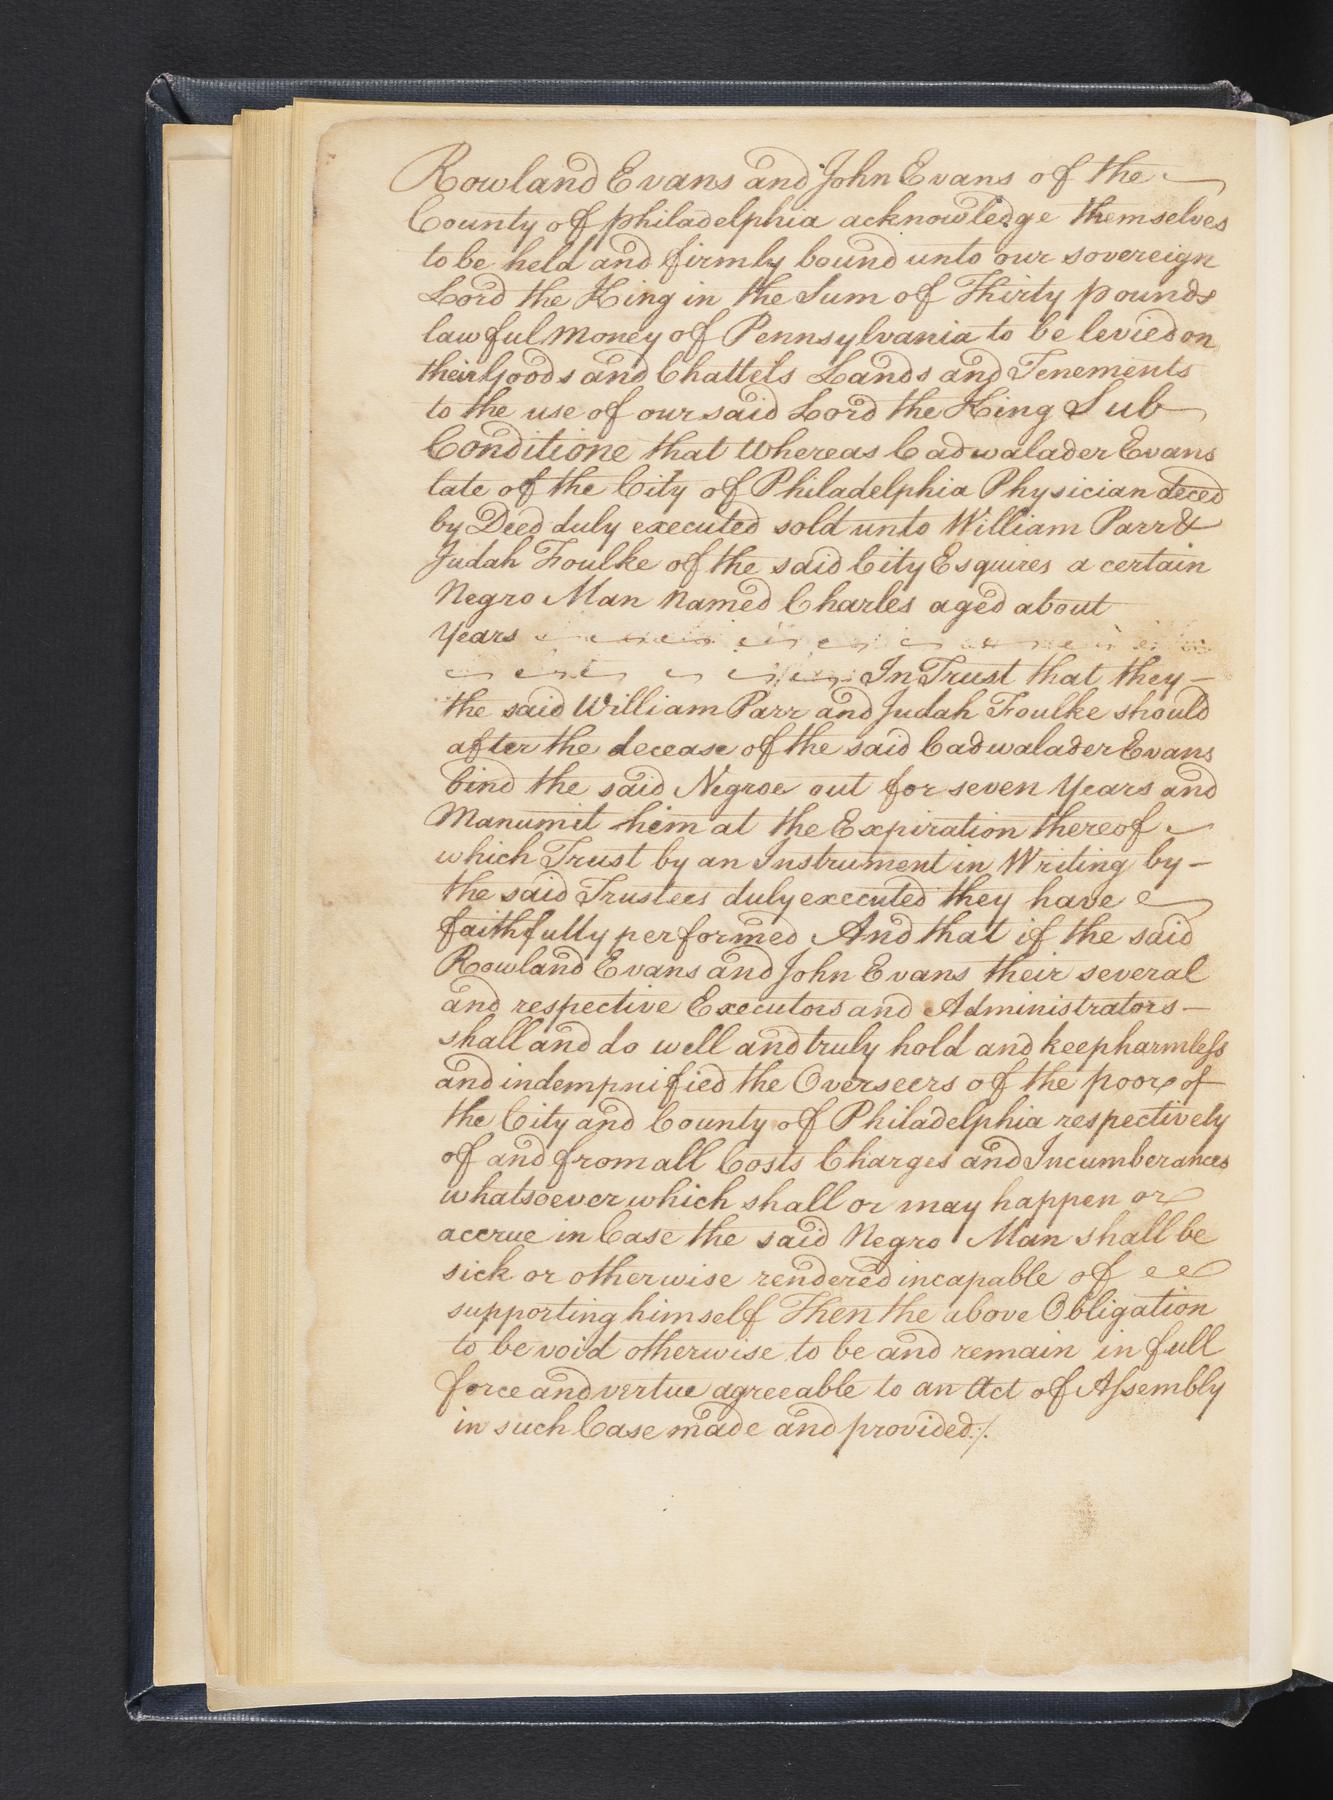 Rowland Evans and John Evans of the
County of philadelphia acknowledge themselves
to be held and firmly bound unto our sovereign
Lord the King in the Sum of Thirty pounds
lawful money of Pennsylvania to be levied on
their Goods and Chattels Lands and Tenements
to the use of our said Lord the King Sub
Conditione that Whereas Cadwalader Evans
late of the City of Philadelphia Physician deced
by Deed duly executed sold unto William Parr &
Judah Foulke of the said City Esquires a certain
Negro Man named Charles aged about
Years
In Trust that they —
the said William Parr and Judah Foulke should
after the decease of the said Cadwalader Evans
bind the said Negroe out for seven Years and
Manumit him at the Expiration thereof
which Trust by an Instrument in Writing by —
the said Trustees duly executed they have
faithfully performed And that if the said
Rowland Evans and John Evans their several
and respective Executors and Administrators —
shall and do well and truly hold and keep harmless
and indempnified the Overseers of the poor of
the City and County of Philadelphia respectively
of and from all Costs Charges and Incumberances
whatsoever which shall or may happen or
accrue in Case the said Negro Man shall be
sick or otherwise rendered incapable of
supporting himself Then the above Obligation
to be void otherwise to be and remain in full
force and vertue agreeable to an Act of Assembly
in such Case made and provided ./.